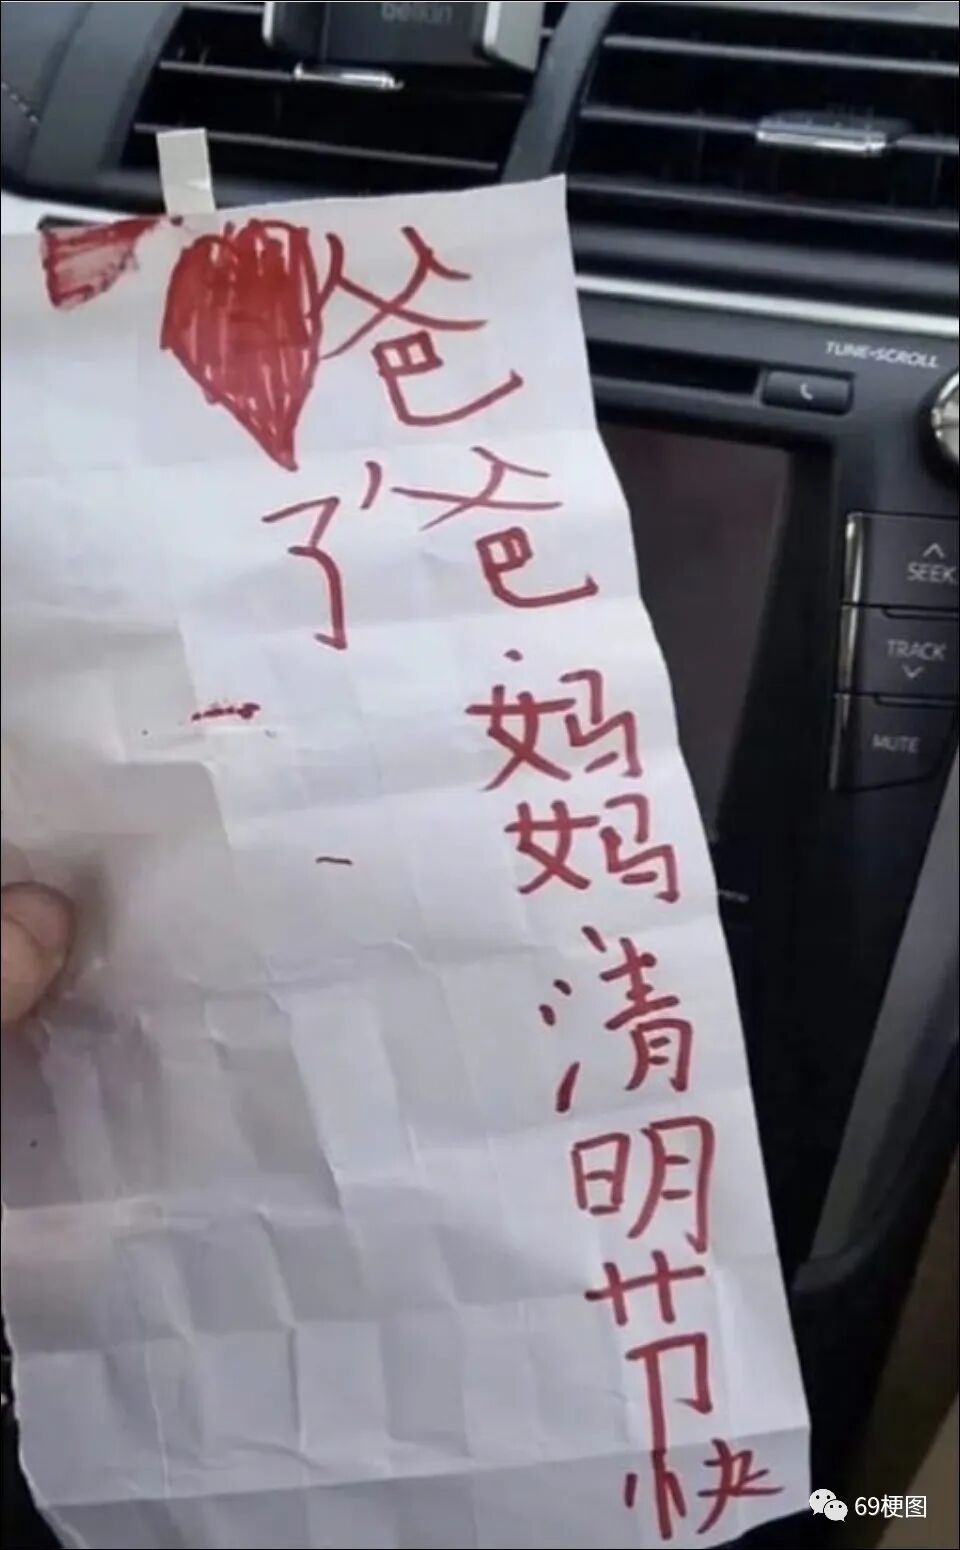 belkin
爸爸.妈妈清明节快
了
TUNE•SCROLL
SEEK
TRACK
MUTE
69梗图